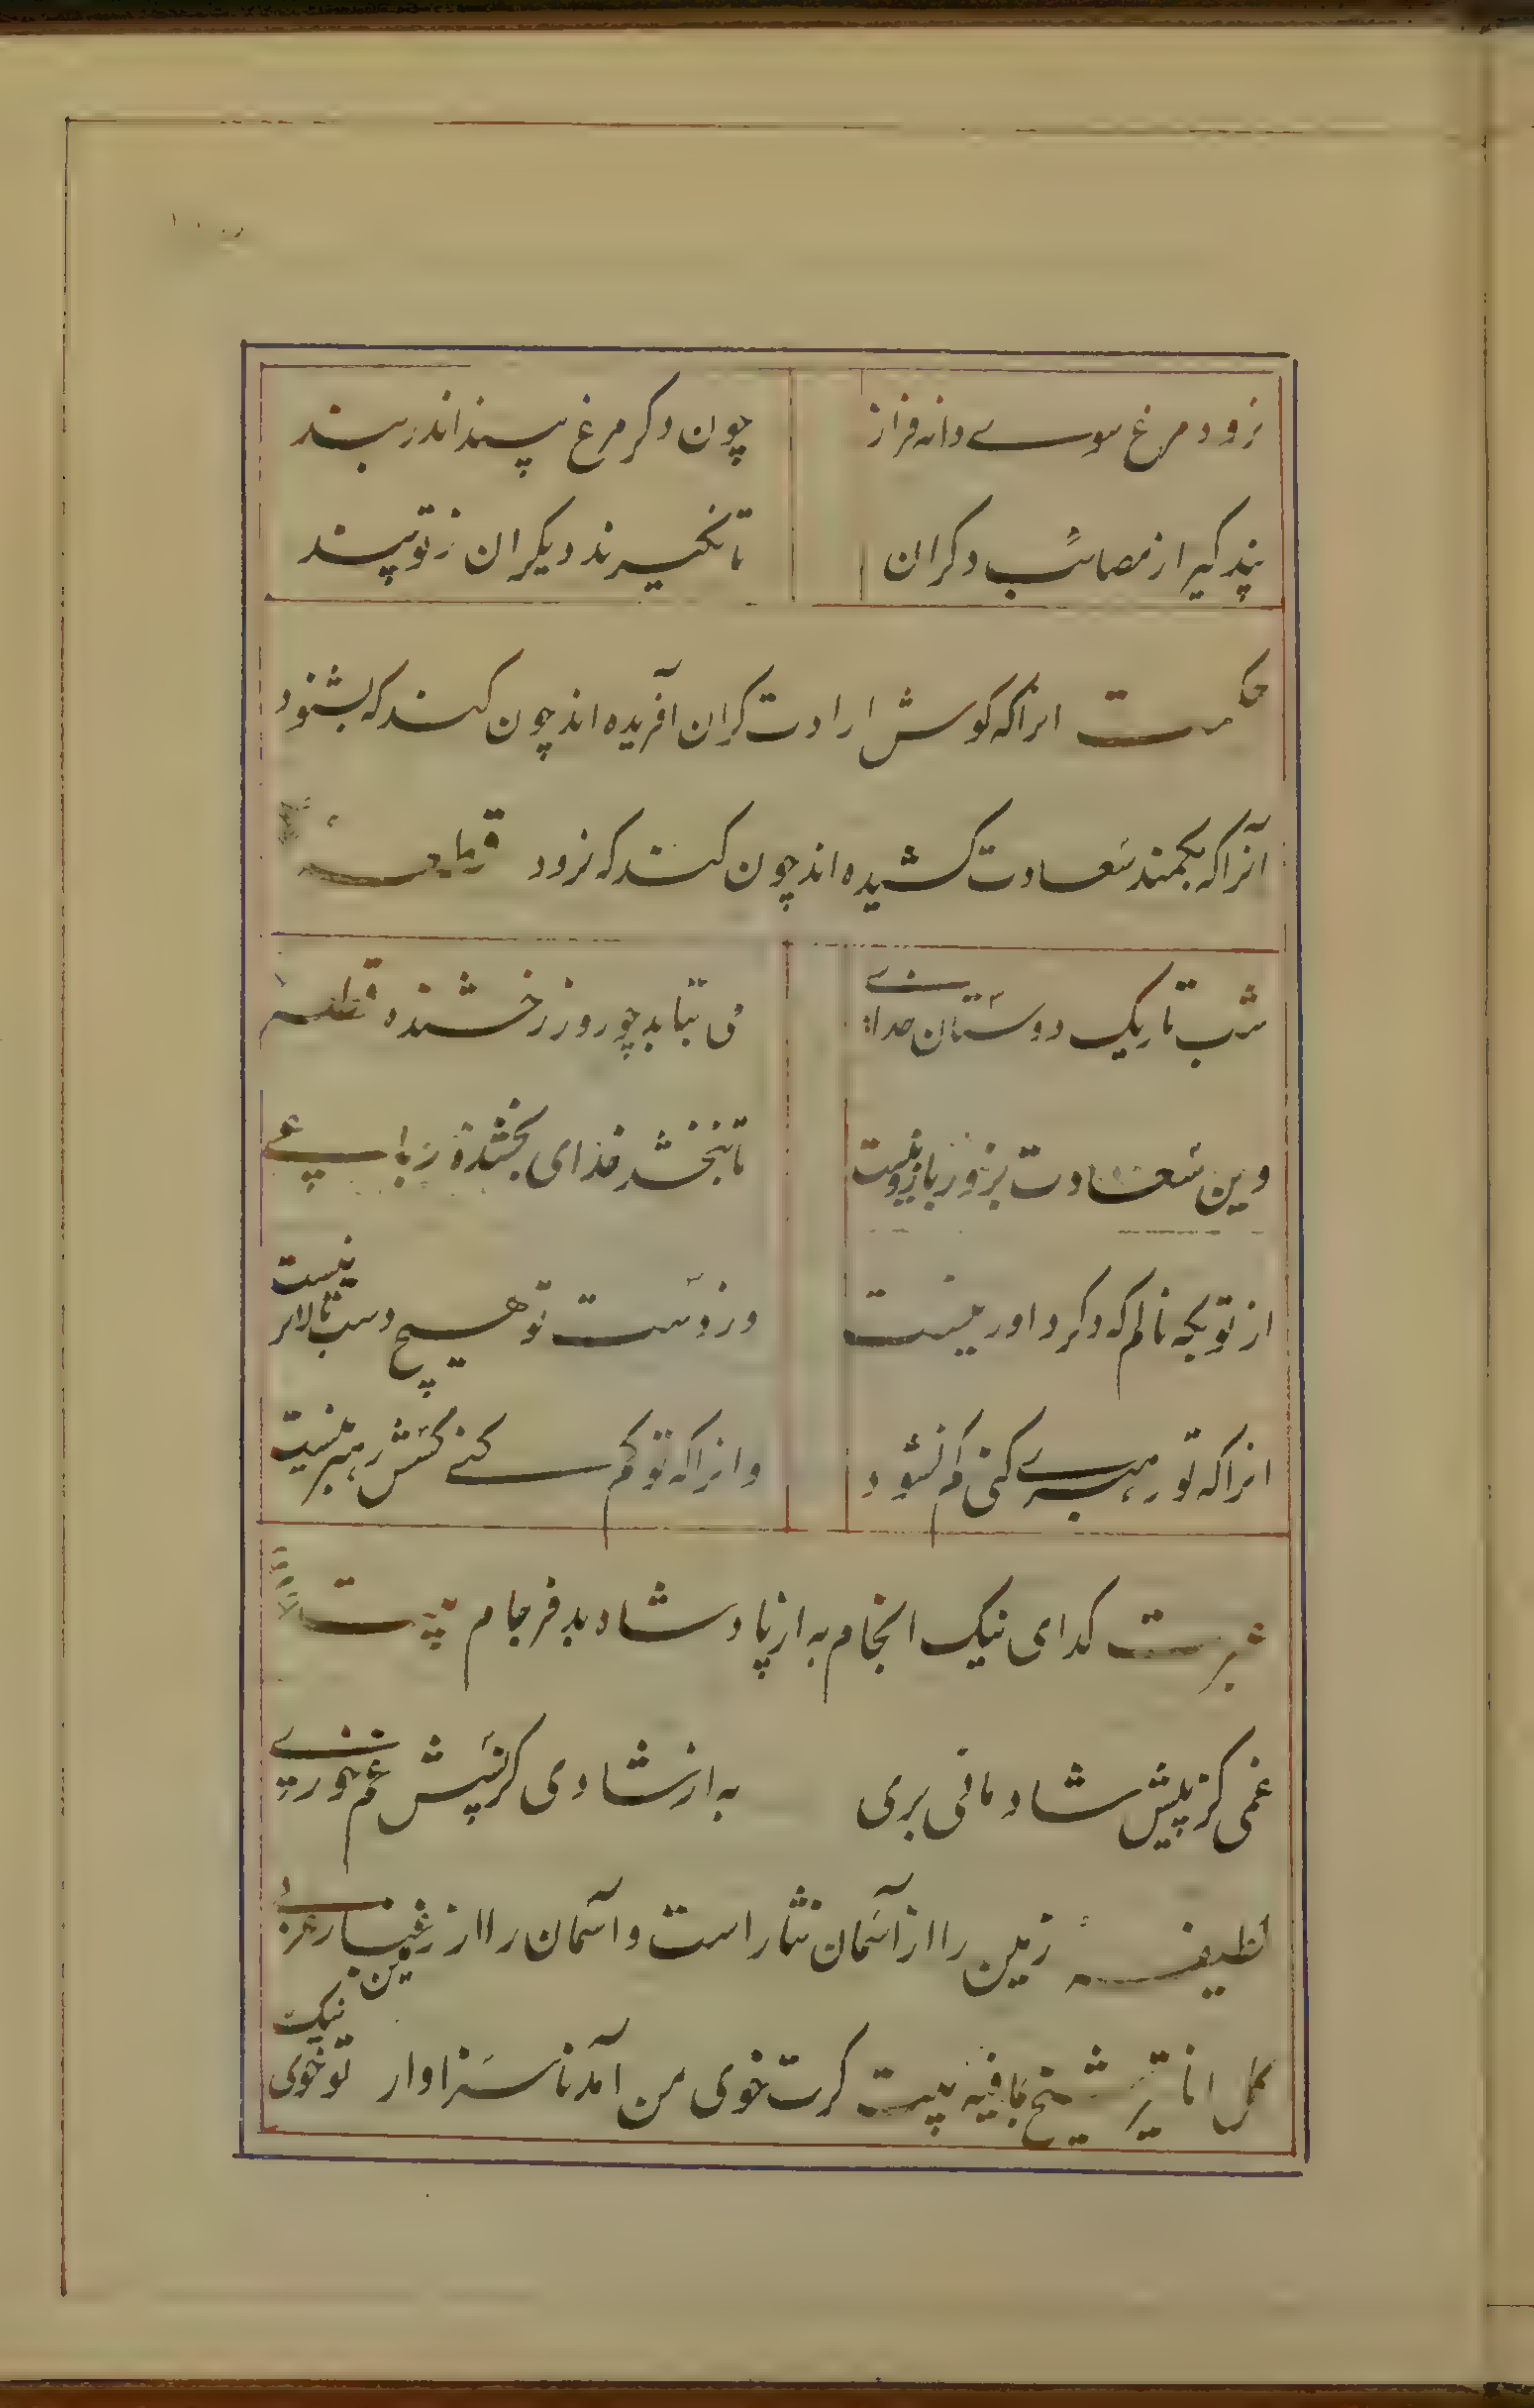 نرود مرغ سوے دانه فراز چون دکر مرغ بیند اندر بند
پند کیر از مصائب دکران تا نکیرند دیکران ز تو پند
حکمت انرا که کوش ارادت کران آفریده اند چون کند که بشنود
آنرا که بکمند سعادت کشیده اند چون کند که نرود
شب تاریک دوستان خداے می بتابد چو روز رخشنده
وین سعادت بزور بازو نیست تا نبخشد خدای بخشنده رباعے
از تو بکه نالم که دکر داور نیست وز دست تو هیچ دست بالاتر نیست
انرا که تو رہبرے کنی کم نشود وانرا که تو کم کنے کسش رہبر نیست
کدای نیک انجام به از پادشاه بد فرجام بیت
غمی کز پیش شادمانی بری به از شادی کز پسش غم خورے
لطیفه زمین را از آسمان نثار است و آسمان را از زمین غبار عربے
کل اناء یترشح بما فیه بیت کرت خوی من آمد ناسزاوار تو خوی نیک